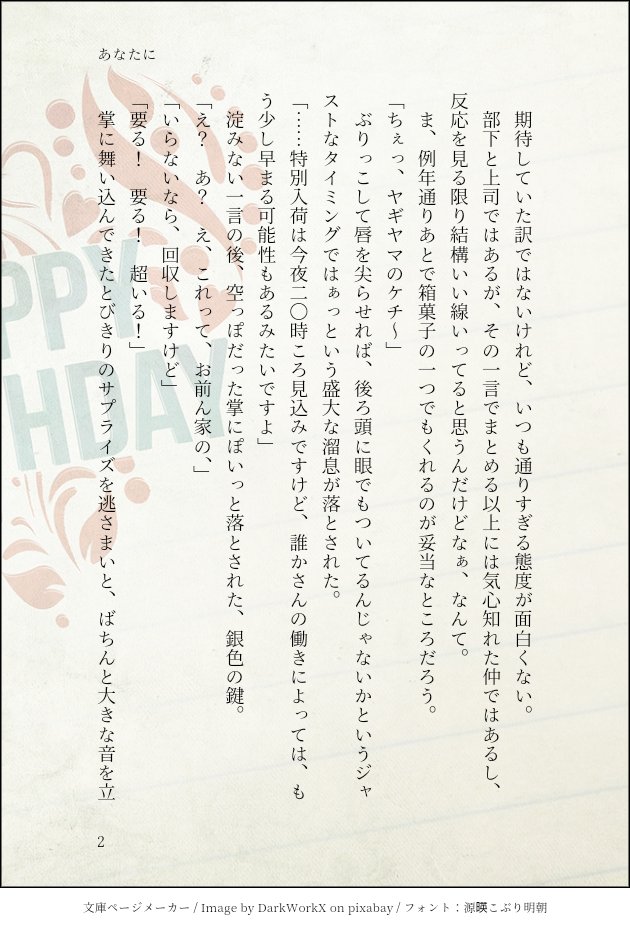 あなたに
　期待していた訳ではないけれど、いつも通りすぎる態度が面白くない。
　部下と上司ではあるが、その一言でまとめる以上には気心知れた仲ではあるし、
反応を見る限り結構いい線いってると思うんだけどなぁ、なんて。
　ま、例年通りあとで箱菓子の一つでもくれるのが妥当なところだろう。
「ちぇっ、ヤギヤマのケチ〜」
　ぶりっこして唇を尖らせれば、後ろ頭に眼でもついてるんじゃないかというジャ
ストなタイミングではぁっという盛大な溜息が落とされた。
「……特別入荷は今夜二〇時ころ見込みですけど、誰かさんの働きによっては、も
う少し早まる可能性もあるみたいですよ」
　淀みない一言の後、空っぽだった掌にぽいっと落とされた、銀色の鍵。
「え？　あ？　え、これって、お前ん家の、」
「いらないなら、回収しますけど」
「要る！　要る！　超いる！」
　掌に舞い込んできたとびきりのサプライズを逃さまいと、ばちんと大きな音を立
2
PPY
HDAY
文庫ページメーカー / Image by DarkWorkX on pixabay / フォント：源暎こぶり明朝